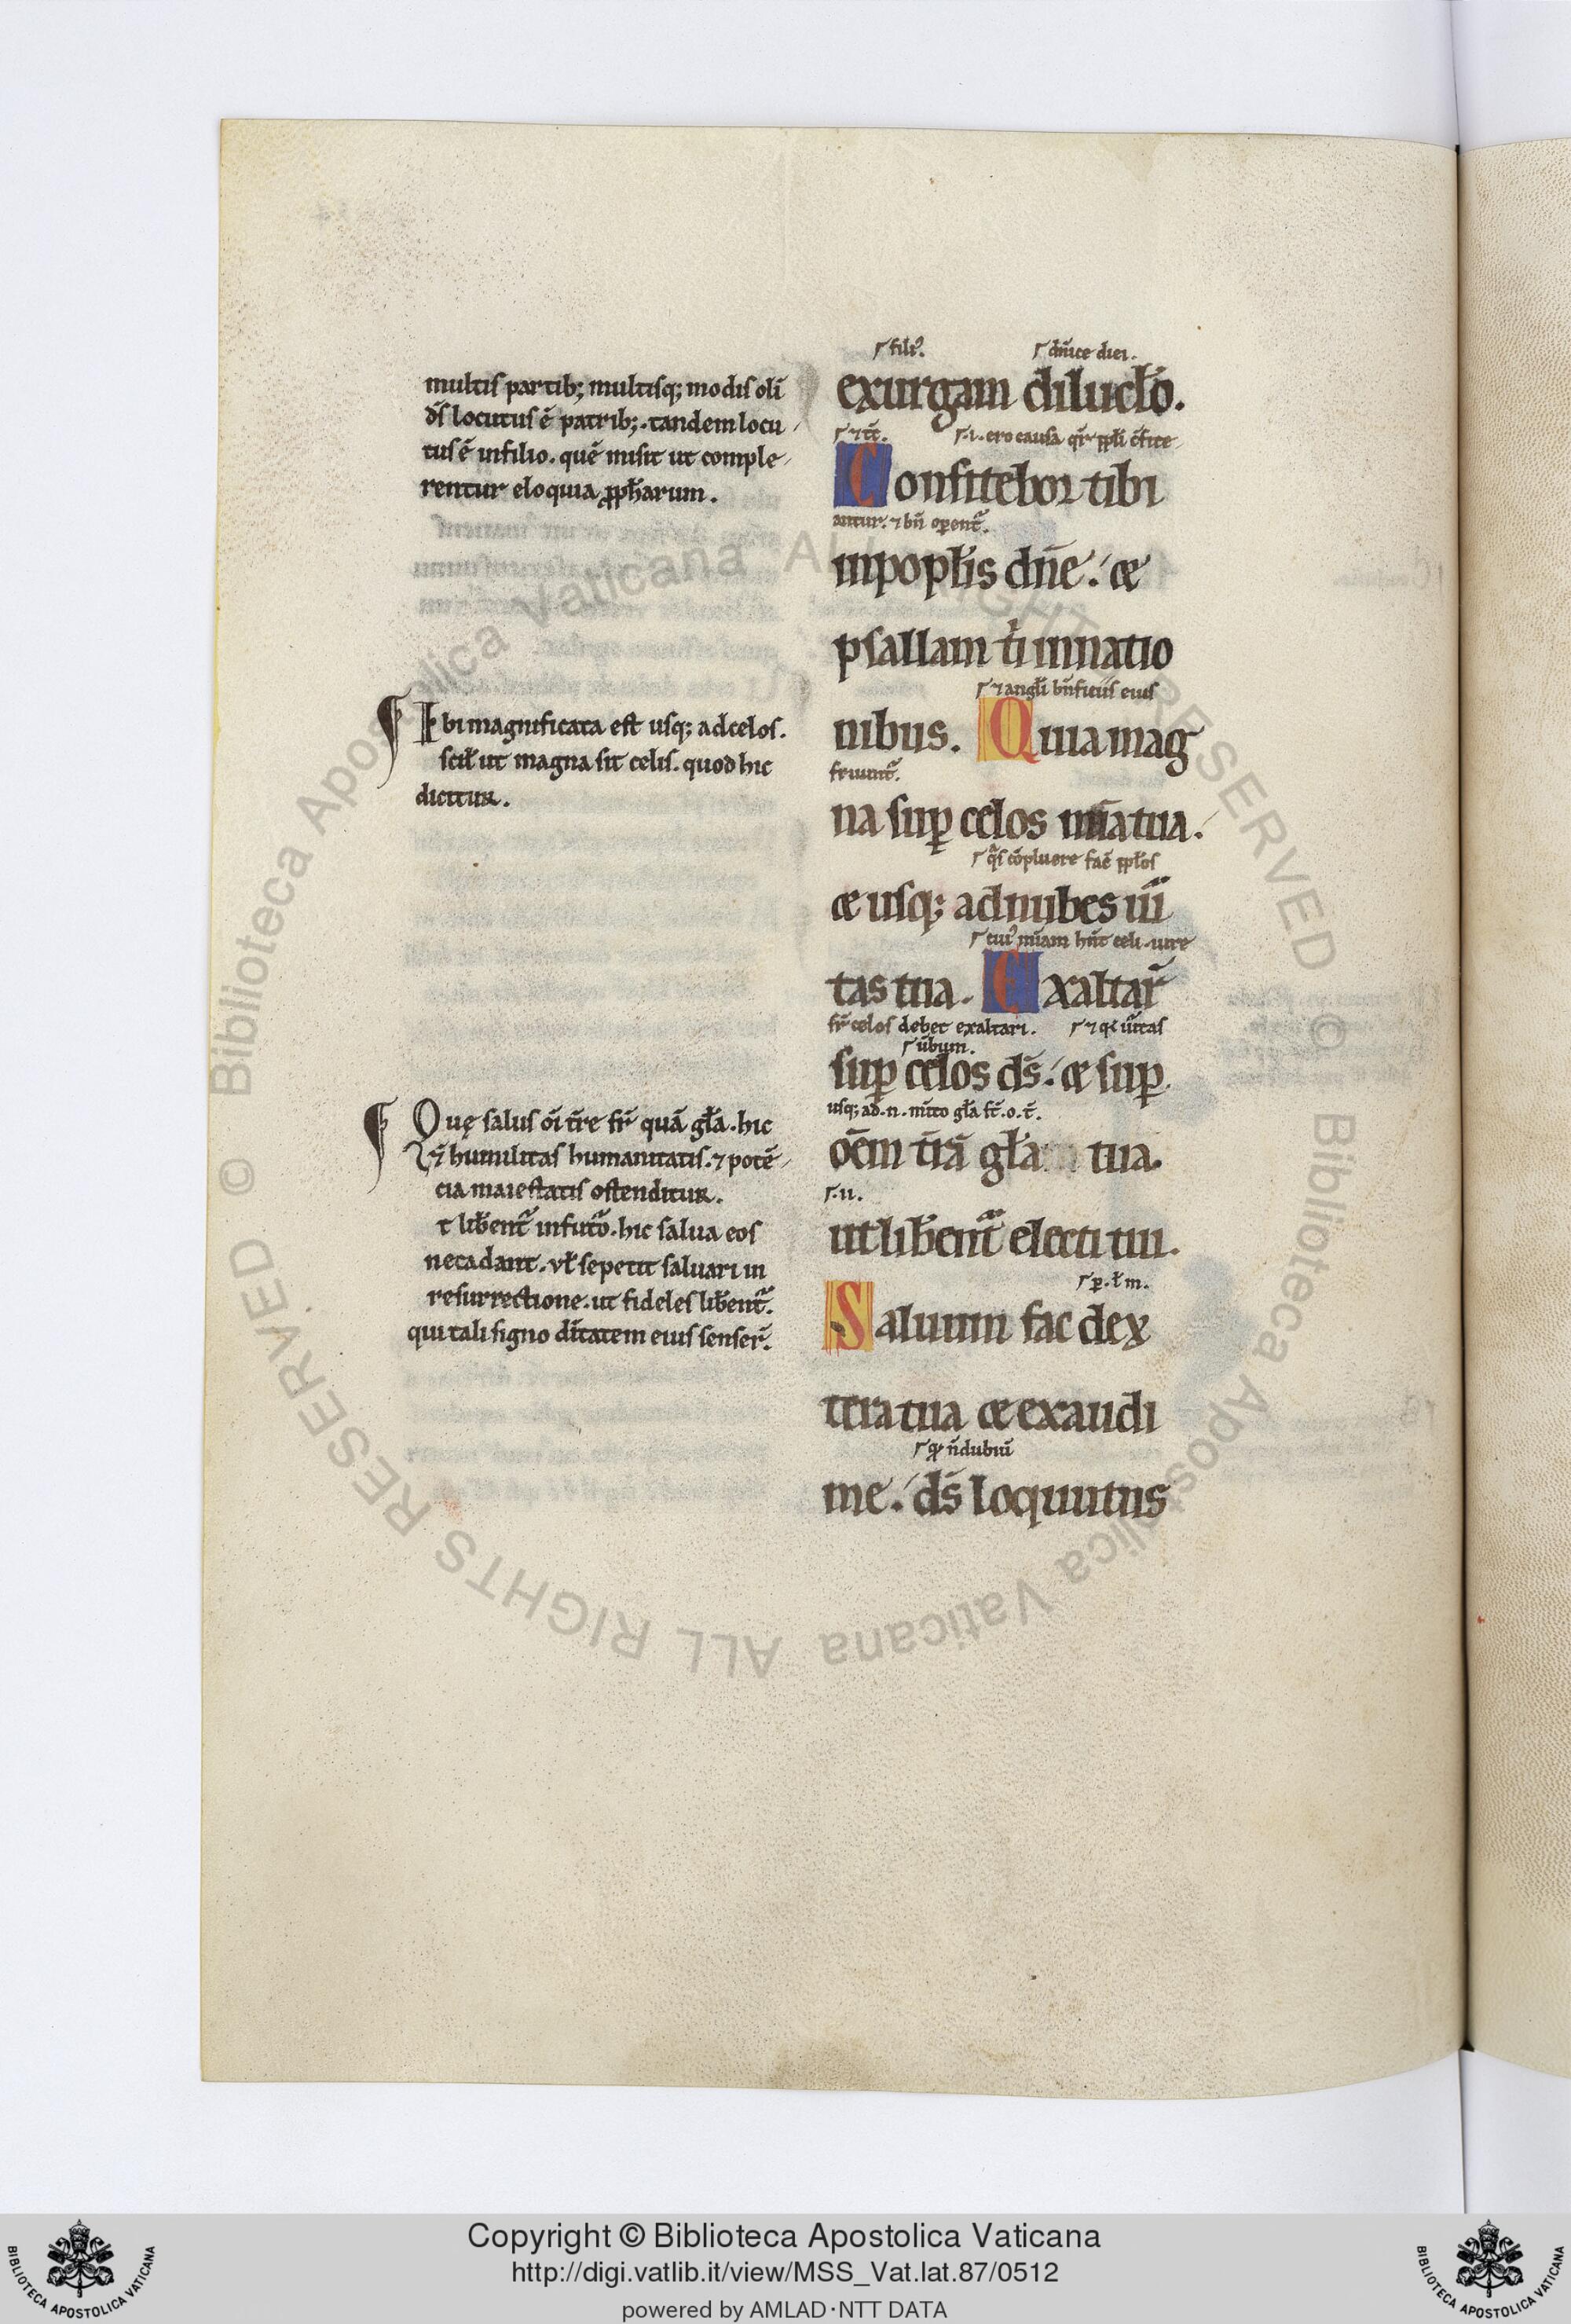 multis partib; multisq; modis oli͂
d͂s locutus e͂ patrib;. tandem locu
tus e͂ in filio. que͂ misit ut comple
rentur eloquia p̱ph̄arum.
Ibi magnificata est usq; ad celos.
scił ut magna sit celis. quod hic
dicitur.
Quę salus oi͂ t͂re
quā gła. hic
humilitas humanitatis. ⁊ potē
cia maiestatis ostenditur.
infut̄o. hic salua eos
ne cadant. vł se petit saluari in
resurrectione. ut fideles lib̄ent᷑.
qui tali signo dīt̄atem eius senser̄.
fili⁹.
dn̄ice diei.
exurgam diluclo.
.i. ero causa
Confitebor tibi
in popłis dn͂e. ⁊
psallam t̄i in natio
⁊ angłi
eius
nibus. Quia mag
na sup̱ celos mīa tua.
⁊ usq; ad nubes ūi
tas tua. Exaltar̄
celos debet exaltari.
ūbum.
sup̱ celos ds̄. ⁊ sup̱
oēm t̄rā głam tua.
ut lib̄ent᷑ electi tui.
Saluum fac dex
tera tua ⁊ exaudi
n̄ dubiū
me. ds̄ loquutus
Copyright © Biblioteca Apostolica Vaticana
http://digi.vatlib.it/view/MSS_Vat.lat.87/0512
powered by AMLAD·NTT DATA
BIBLIOTECA APOSTOLICA VATICANA
BIBLIOTECA APOSTOLICA VATICANA
© Biblioteca Apostolica Vaticana ALL RIGHTS RESERVED © Biblioteca Apostolica Vaticana ALL RIGHTS RESERVED